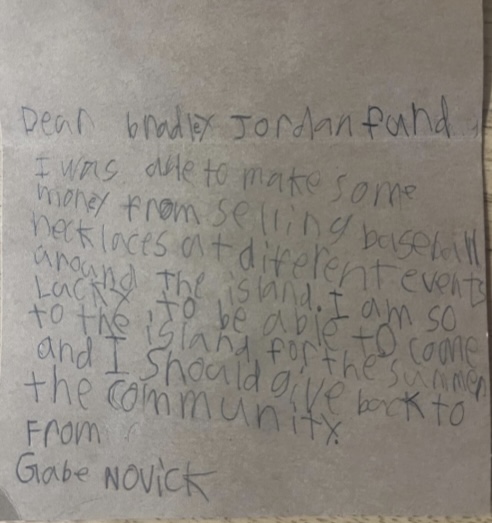 Dear bradley Jordan fund
I was able to make some
money from selling baseball
necklaces at diferent events
around the island. I am so
Lucky to be able to come
to the island for the summer
and I should give back to
the community.
From
Gabe Novick